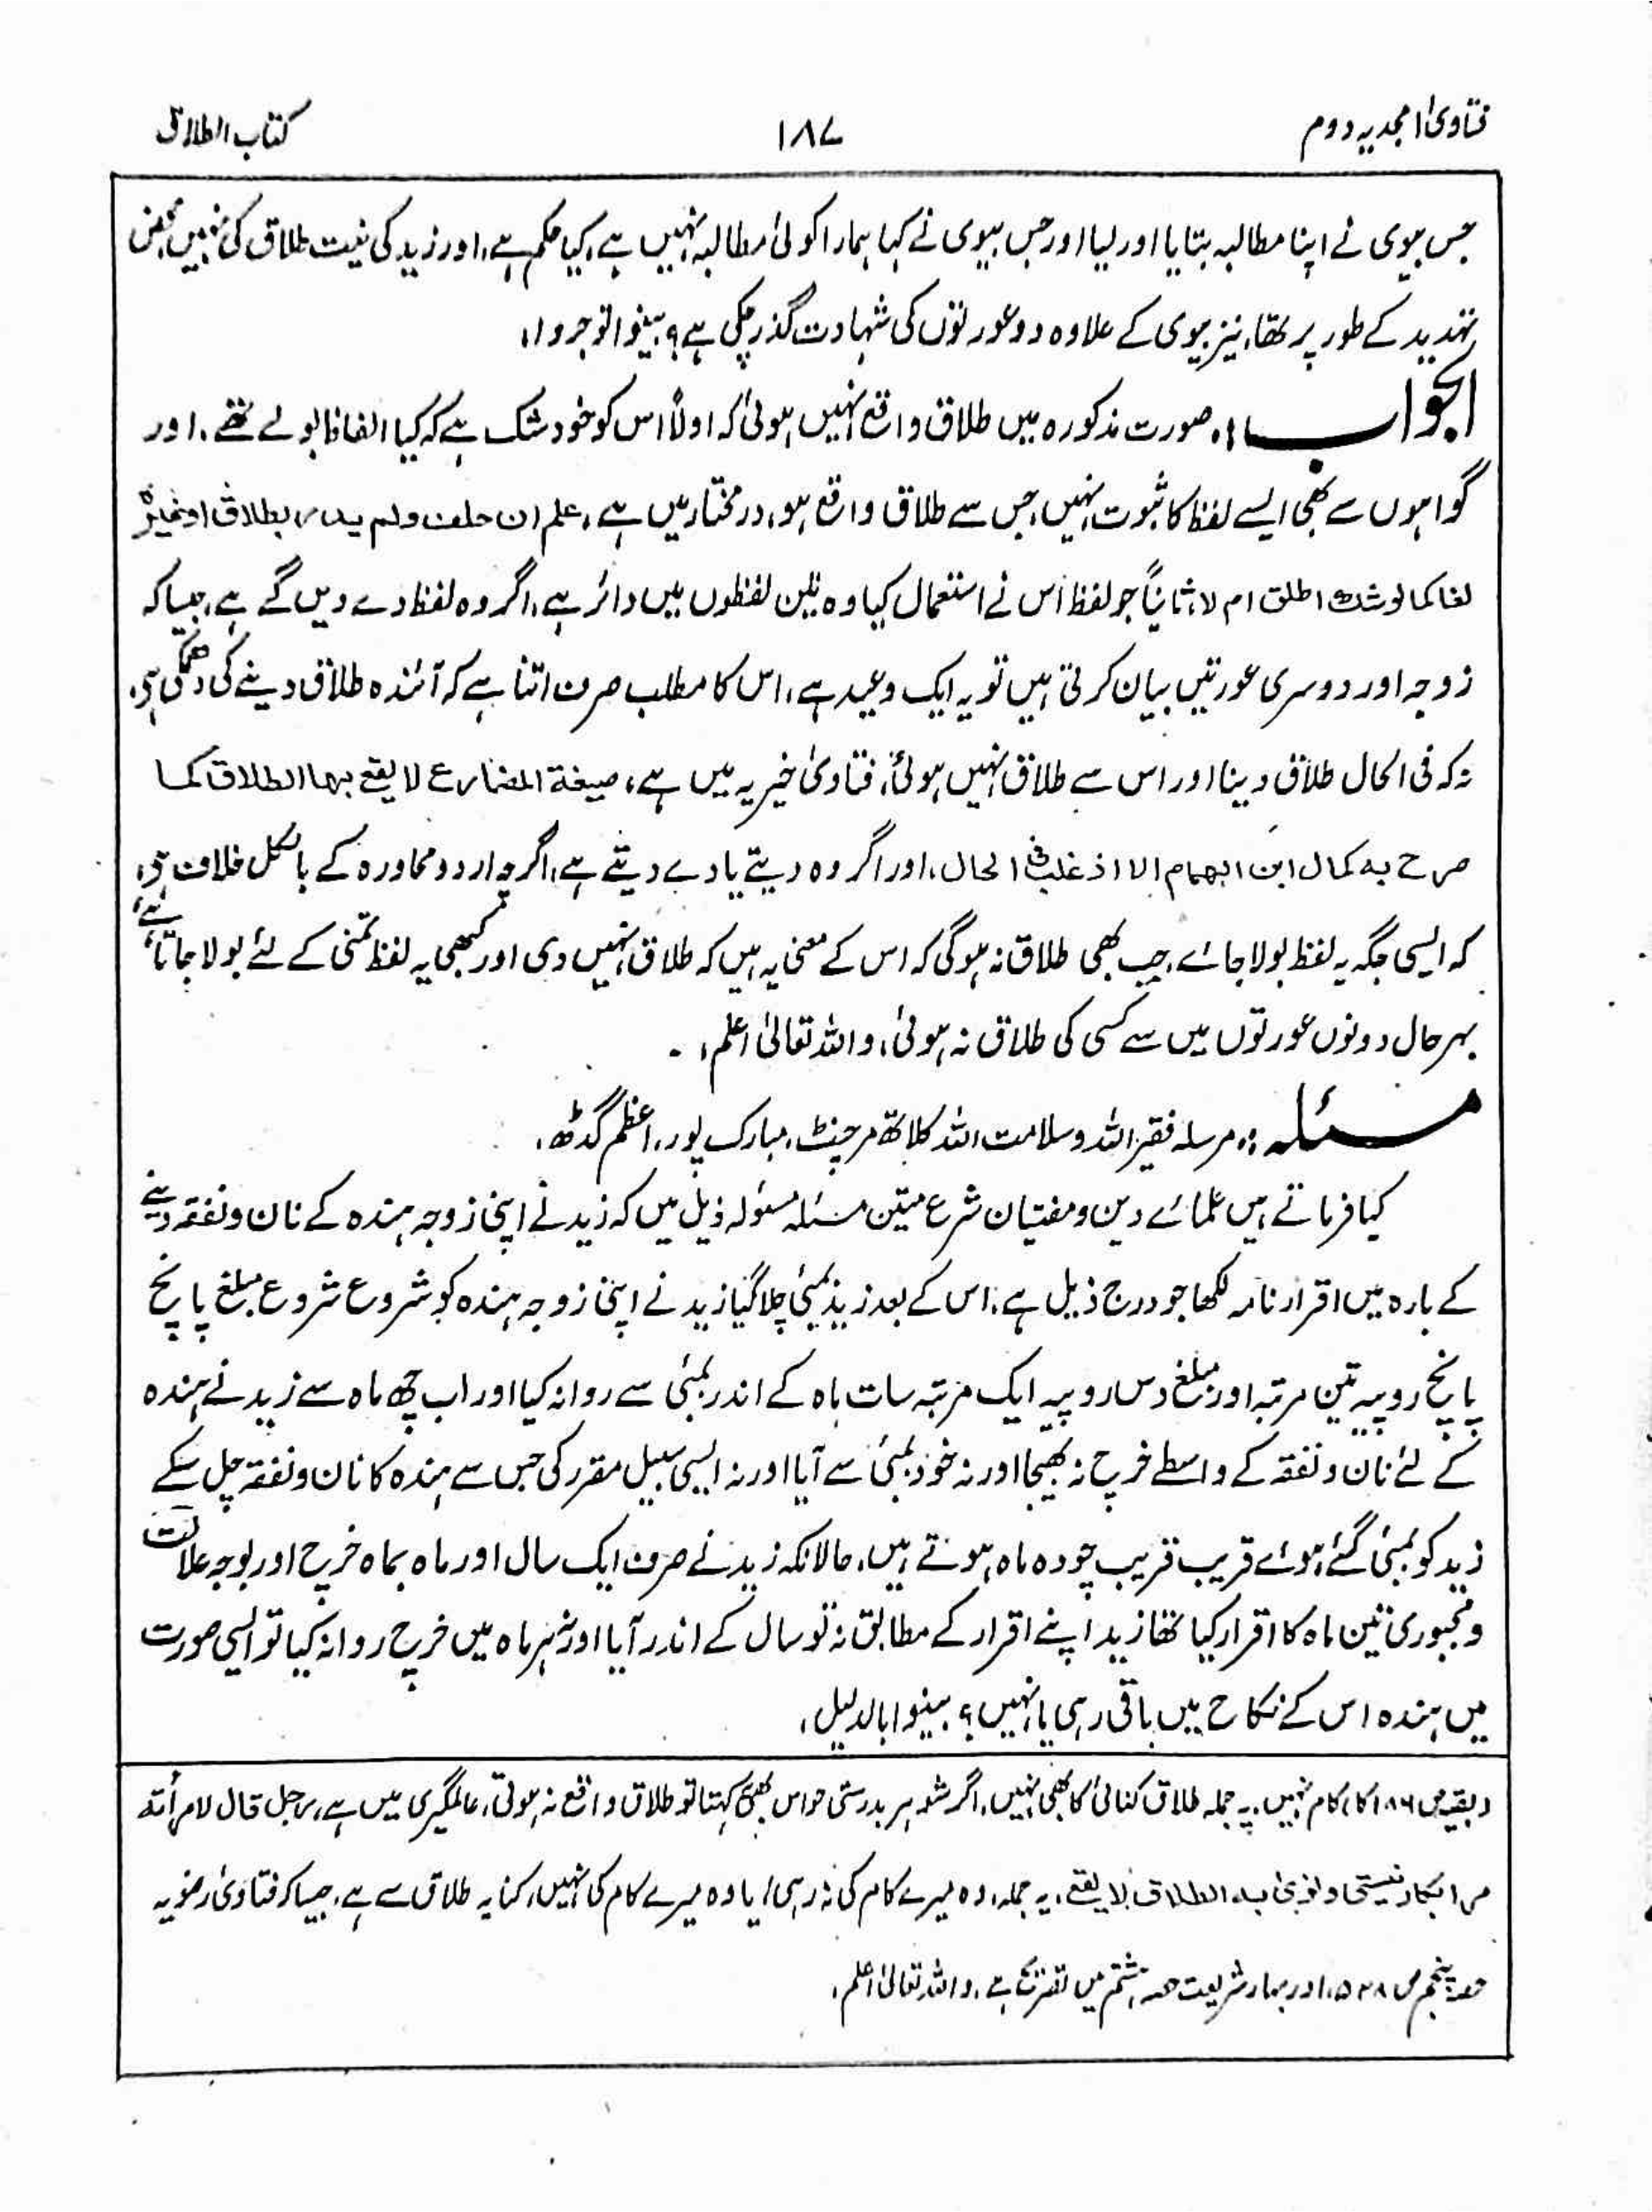 فتاویٰ امجدیہ دوم
۱۸۷
کتاب الطلاق
جس بیوی نے اپنا مطالبہ بتایا اور لیا اور جس بیوی نے کہا ہمارا کوئی مطالبہ نہیں ہے، کیا حکم ہے، اور زید کی نیت طلاق کی نہیں محض
تہدید کے طور پر تھا، نیز بیوی کے علاوہ دو عورتوں کی شہادت گذر چکی ہے؟ بینوا توجروا،
الجواب :، صورت مذکورہ میں طلاق واقع نہیں ہوئی کہ اولاً اس کو خود شک ہے کہ کیا الفاظ بولے تھے، اور
گواہوں سے بھی ایسے لفظ کا ثبوت نہیں، جس سے طلاق واقع ہو، درمختار میں ہے، علم ان حلف ولم یدر بطلاق او غیرہ
لغا کما لو شک اطلق ام لا، ثانیاً جو لفظ اس نے استعمال کیا وہ تین لفظوں میں دائر ہے، اگر وہ لفظ دے دیں گے ہے، جیسا کہ
زوجہ اور دوسری عورتیں بیان کرتی ہیں تو یہ ایک وعید ہے، اس کا مطلب صرف اتنا ہے کہ آئندہ طلاق دینے کی دھمکی ہے،
نہ کہ فی الحال طلاق دینا اور اس سے طلاق نہیں ہوئی، فتاویٰ خیریہ میں ہے، صیغة المضارع لا یقع بہا الطلاق کما
صرح بہ کمال ابن الہمام الا اذ غلب فی الحال، اور اگر وہ دیتے یا دے دیتے ہے، اگرچہ اردو محاورہ کے بالکل خلاف ہے،
کہ ایسی جگہ یہ لفظ بولا جائے، جب بھی طلاق نہ ہوگی کہ اس کے معنی یہ ہیں کہ طلاق نہیں دی اور کبھی یہ لفظ تمنی کے لئے بولا جاتا ہے،
بہرحال دونوں عورتوں میں سے کسی کی طلاق نہ ہوئی، واللہ تعالیٰ اعلم، ۔
مسئلہ :، مرسلہ فقیر اللہ و سلامت اللہ کلاتھ مرچنٹ، مبارک پور، اعظم گڈھ،
کیا فرماتے ہیں علمائے دین و مفتیان شرع متین مسئلہ مسئولہ ذیل میں کہ زید نے اپنی زوجہ ہندہ کے نان و نفقہ دینے
کے بارہ میں اقرار نامہ لکھا جو درج ذیل ہے، اس کے بعد زید بمبئی چلا گیا زید نے اپنی زوجہ ہندہ کو شروع شروع مبلغ پانچ
پانچ روپیہ تین مرتبہ اور مبلغ دس روپیہ ایک مرتبہ سات ماہ کے اندر بمبئی سے روانہ کیا اور اب چھ ماہ سے زید نے ہندہ
کے لئے نان و نفقہ کے واسطے خرچ نہ بھیجا اور نہ خود بمبئی سے آیا اور نہ ایسی سبیل مقرر کی جس سے ہندہ کا نان و نفقہ چل سکے
زید کو بمبئی گئے ہوئے قریب قریب چودہ ماہ ہوتے ہیں، حالانکہ زید نے صرف ایک سال اور ماہ بماہ خرچ اور بوجہ علالت
و مجبوری تین ماہ کا اقرار کیا تھا زید اپنے اقرار کے مطابق نہ تو سال کے اندر آیا اور نہ ہر ماہ میں خرچ روانہ کیا تو ایسی صورت
میں ہندہ اس کے نکاح میں باقی رہی یا نہیں؟ بینوا بالدلیل،
(بقیہ ص ۱۸۶ کا) کام نہیں، یہ جملہ طلاق کنائی کا بھی نہیں، اگر شوہر بدرستی حواس بھی کہتا تو طلاق واقع نہ ہوتی، عالمگیری میں ہے، رجل قال لامرأتہ
مرا بکار نیستی ونوی بہ الطلاق لا یقع، یہ جملہ، وہ میرے کام کی نہ رہی، یا وہ میرے کام کی نہیں، کنایہ طلاق سے ہے، جیسا کہ فتاویٰ رضویہ
حصہ پنجم ص ۵۲۸، اور بہار شریعت حصہ ہشتم میں تصریح ہے، واللہ تعالیٰ اعلم،